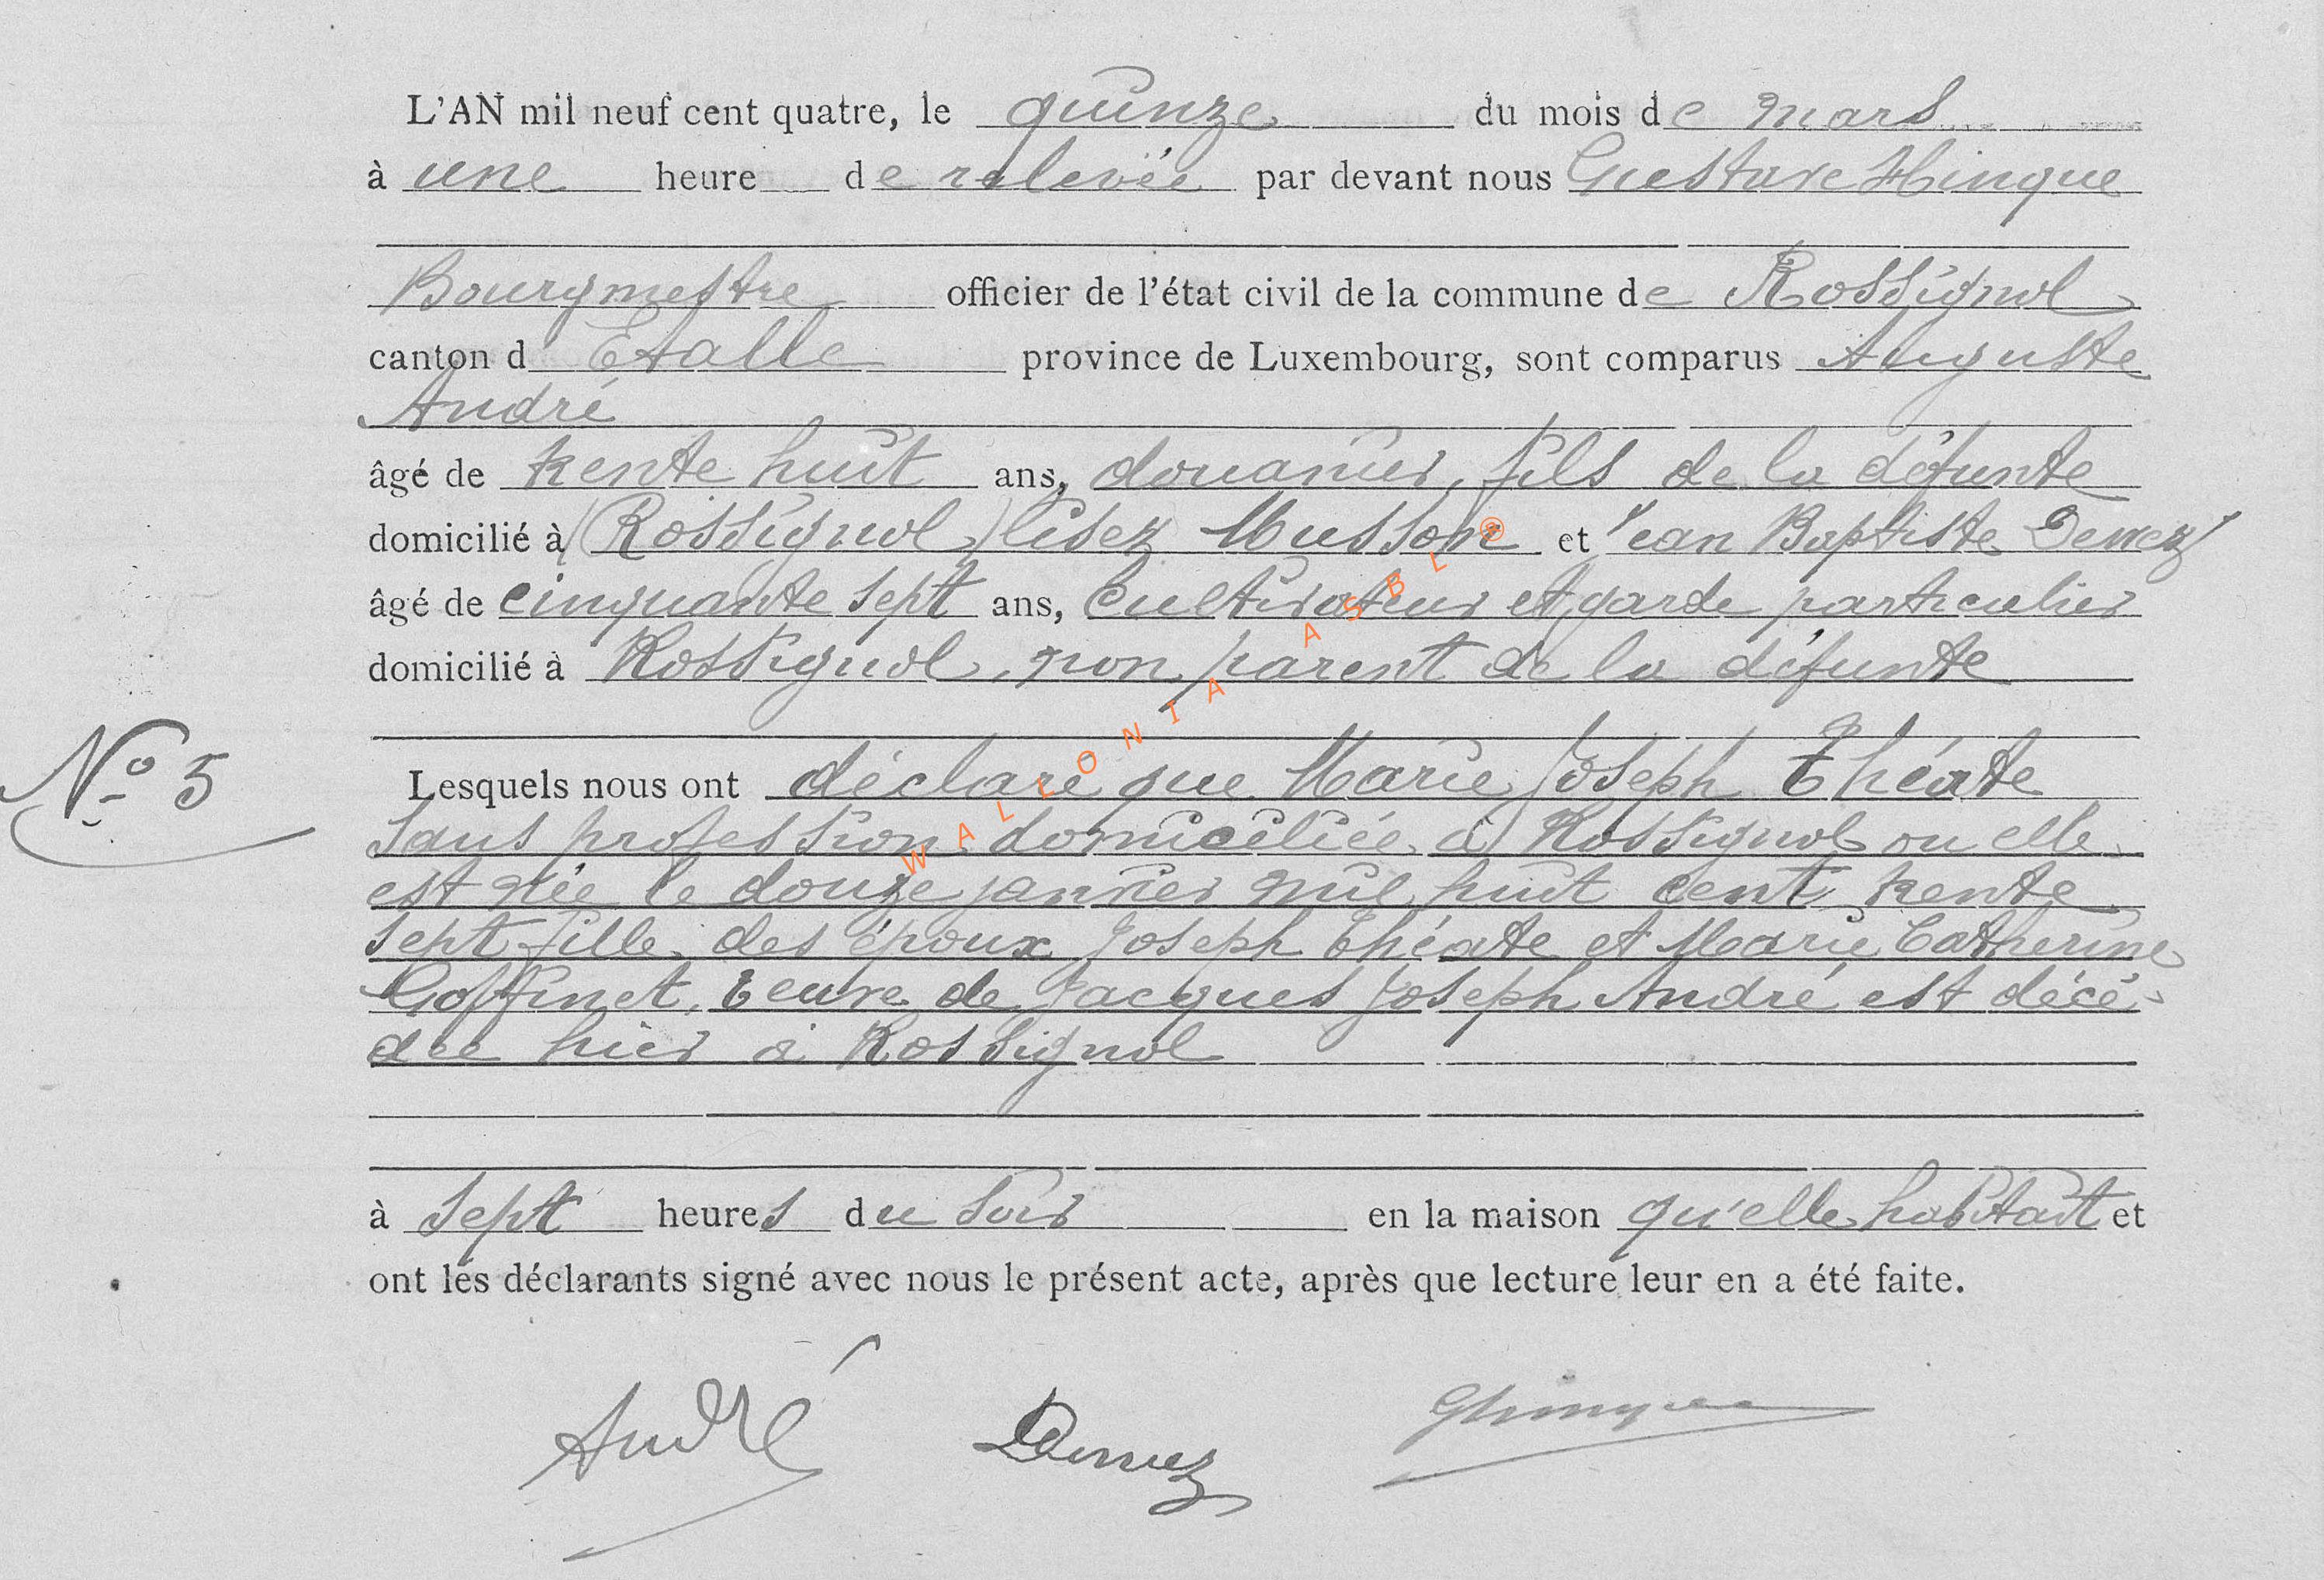 L'AN mil neuf cent quatre, le quinze du mois de Mars
à une heure de relevée par devant nous Gustave Hinque
Bourgmestre officier de l'état civil de la commune de Rossignol
canton d Etalle province de Luxembourg, sont comparus Auguste
André
âgé de trente huit ans, douanier, fils de la défunte
domicilié à (Rossignol) lisez Musson et Jean Baptiste Dewez
âgé de cinquante sept ans, Cultivateur et garde particulier
domicilié à Rossignol, non parent de la défunte
N° 5
Lesquels nous ont déclaré que Marie Joseph Théate
Sans profession domiciliée à Rossignol ou elle
est née le douze janvier mil huit cent trente
sept fille des époux Joseph Théate et Marie Catherine
Goffinet, veuve de Jacques Joseph André est décé-
dée hier à Rossignol
à sept heures du soir en la maison qu'elle habitait et
ont les déclarants signé avec nous le présent acte, après que lecture leur en a été faite.
André Dewez GHinque
WALLONIA ASBL ®